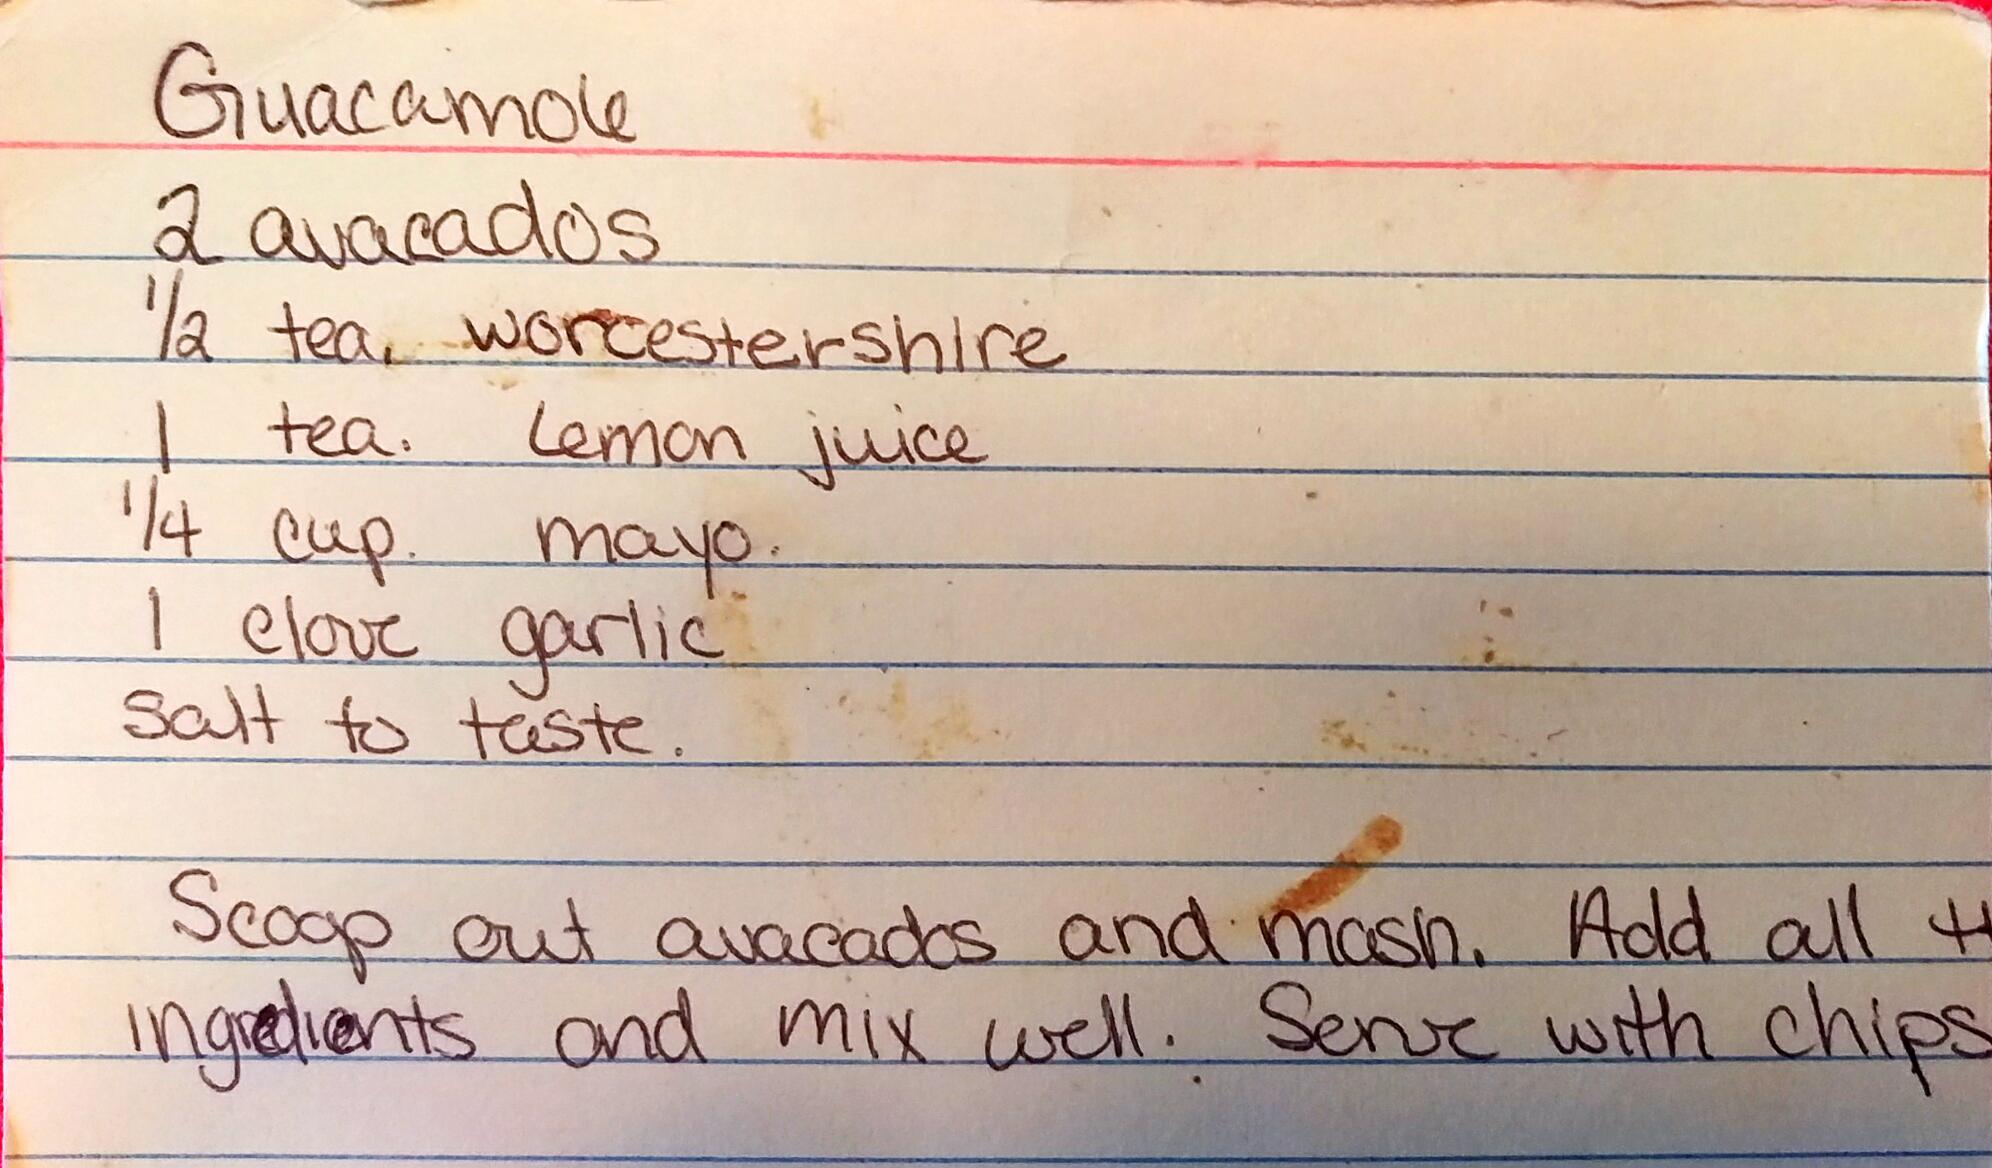 Guacamole
2 avacados
1/2 tea. worcestershire
1 tea. Lemon juice
1/4 cup. mayo.
1 clove garlic
salt to taste.
Scoop out avacados and mash. Add all
ingredients and mix well. Serve with chips